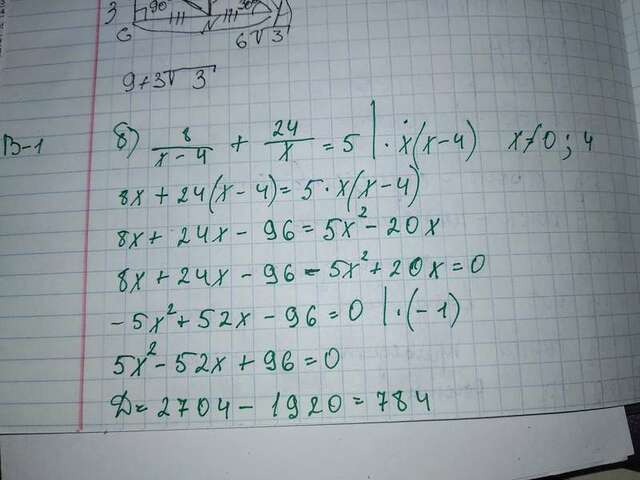 В-1
9+3√3
6√3
8) 8/(x-4) + 24/x = 5 | · x(x-4) x≠0; 4
8x + 24(x-4) = 5·x(x-4)
8x + 24x - 96 = 5x² - 20x
8x + 24x - 96 - 5x² + 20x = 0
-5x² + 52x - 96 = 0 | ·(-1)
5x² - 52x + 96 = 0
D = 2704 - 1920 = 784